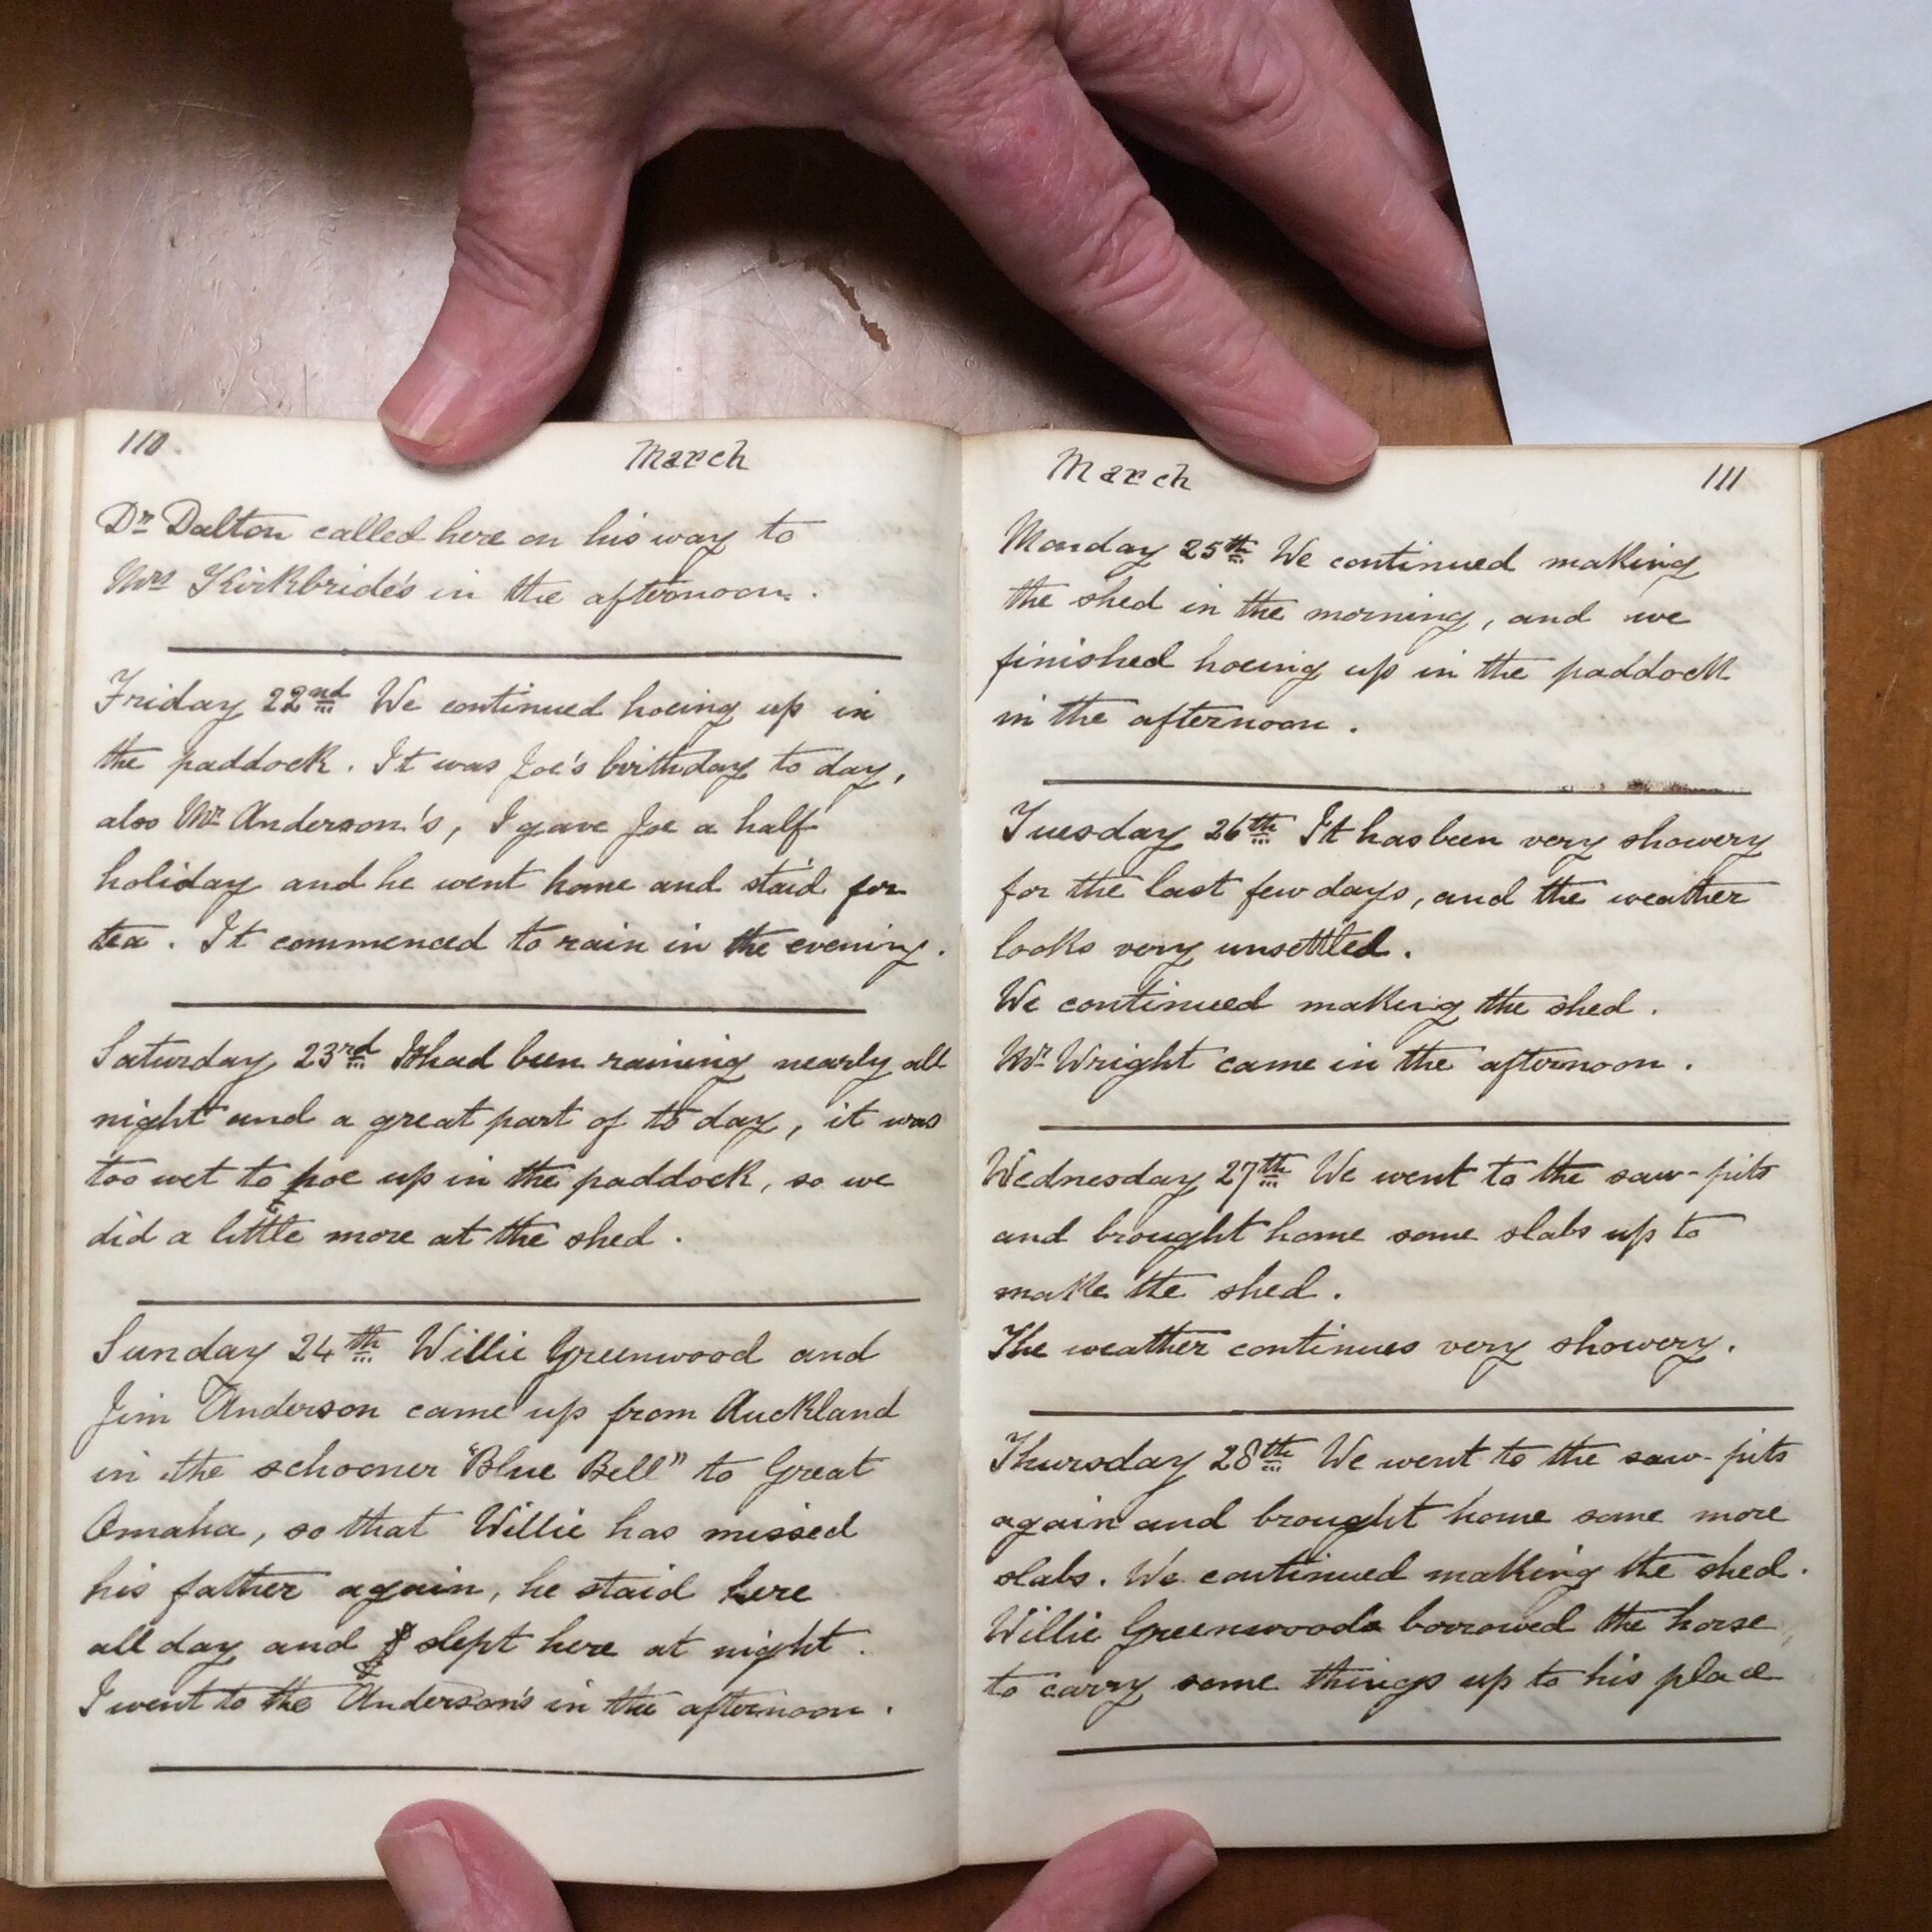 110
March
Dr Dalton called here on his way to
Mrs Kirkbride's in the afternoon.
Friday 22nd We continued hoeing up in
the paddock. It was Joe's birthday to day,
also Mr Anderson's, I gave Joe a half
holiday and he went home and staid for
tea. It commenced to rain in the evening.
Saturday 23rd It had been raining nearly all
night and a great part of to day, it was
too wet to hoe up in the paddock, so we
did a little more at the shed.
Sunday 24th Willie Greenwood and
Jim Anderson came up from Auckland
in the schooner "Blue Bell" to Great
Omaha, so that Willie has missed
his father again, he staid here
all day and slept here at night.
I went to the Anderson's in the afternoon.
March
111
Monday 25th We continued making
the shed in the morning, and we
finished hoeing up in the paddock
in the afternoon.
Tuesday 26th It has been very showery
for the last few days, and the weather
looks very unsettled.
We continued making the shed.
Mr Wright came in the afternoon.
Wednesday 27th We went to the saw-pits
and brought home some slabs up to
make the shed.
The weather continues very showery.
Thursday 28th We went to the saw-pits
again and brought home some more
slabs. We continued making the shed.
Willie Greenwood borrowed the horse,
to carry some things up to his place